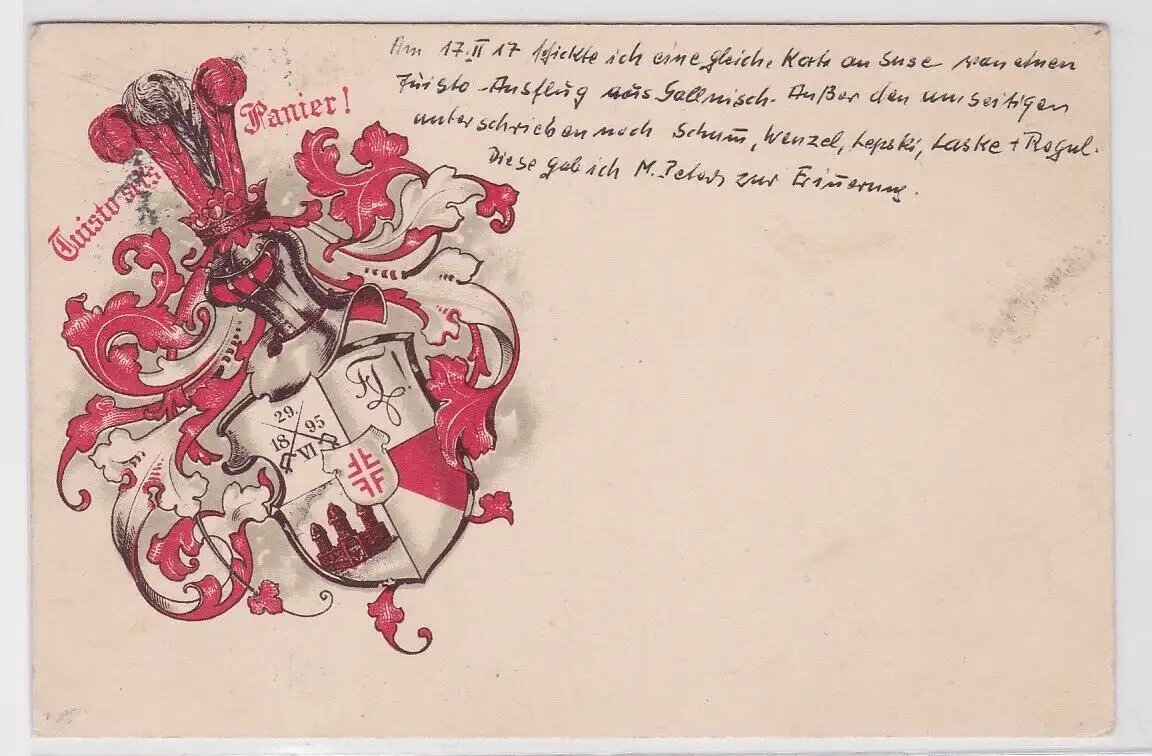 Tuisto sei's Panier!
Am 17.II 17 schickte ich eine gleiche Karte an Suse von einen
Tuisto-Ausflug aus Gollnisch. Außer den umseitigen
unterschrieben noch Schum, Wenzel, Lepski, Laske + Rogul.
Diese gab ich M. Peters zur Erinnerung.
29. 18 95 VI